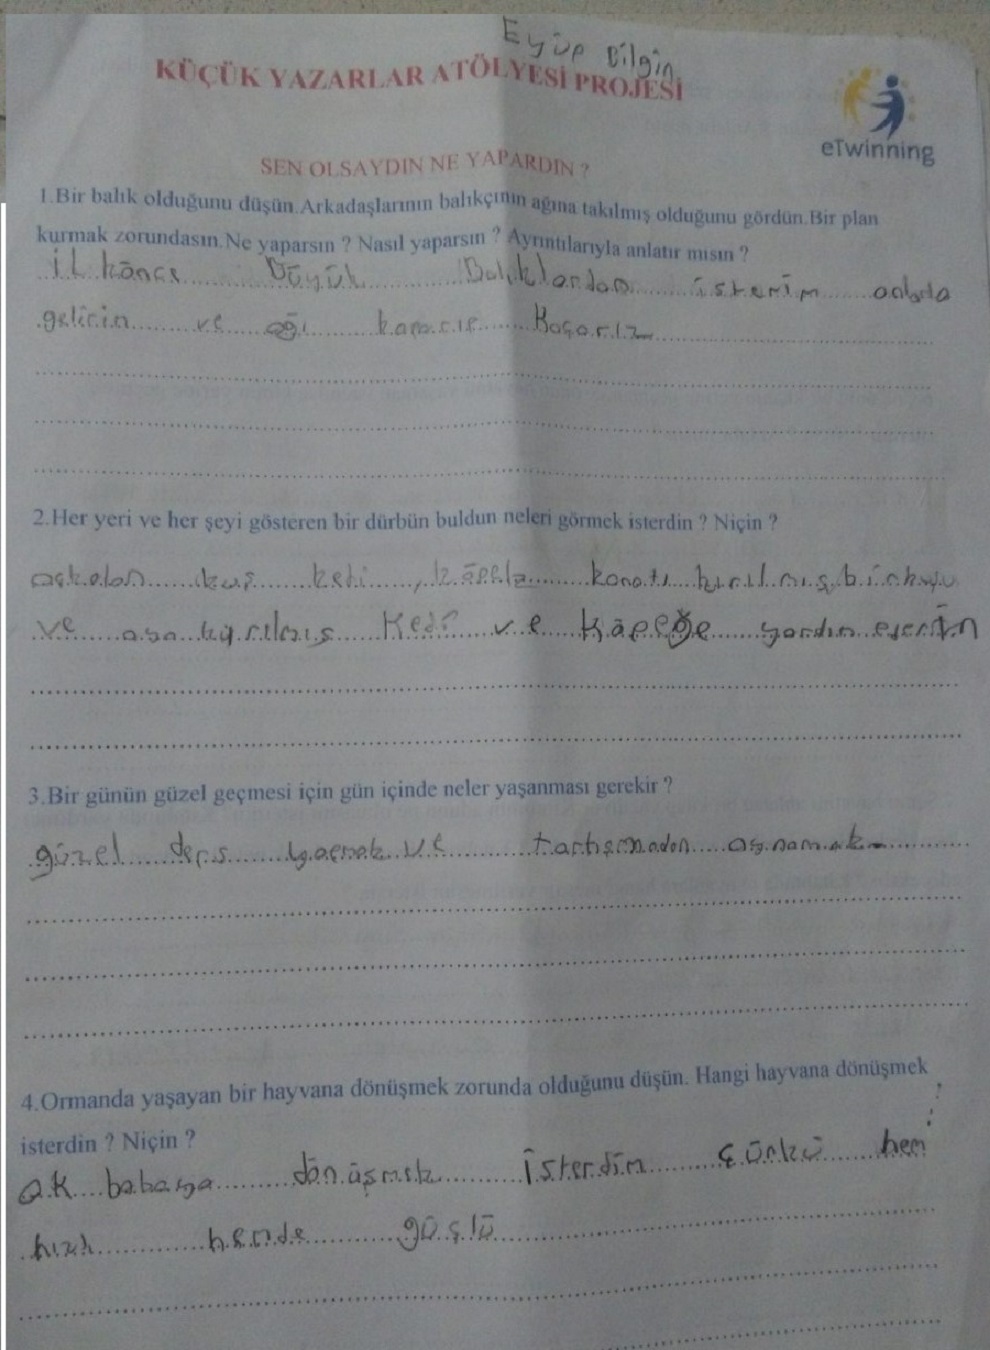 Eyüp Bilgin
KÜÇÜK YAZARLAR ATÖLYESİ PROJESİ
eTwinning
SEN OLSAYDIN NE YAPARDIN ?
1.Bir balık olduğunu düşün.Arkadaşlarının balıkçının ağına takılmış olduğunu gördün.Bir plan
kurmak zorundasın.Ne yaparsın ? Nasıl yaparsın ? Ayrıntılarıyla anlatır mısın ?
ilkönce Büyük Balıklardan isterim onlarda
gelirin ve ağı koparır Kaçarız
2.Her yeri ve her şeyi gösteren bir dürbün buldun neleri görmek isterdin ? Niçin ?
kuş kedi, köpek kanatı kırılmış bir kuşu
ve kırılmış Kedi ve Köpeğe yardım ederim
3.Bir günün güzel geçmesi için gün içinde neler yaşanması gerekir ?
güzel ders ve tartışmadan oynamak
4.Ormanda yaşayan bir hayvana dönüşmek zorunda olduğunu düşün. Hangi hayvana dönüşmek
isterdin ? Niçin ?
ak babaya dönüşmek isterdim çünkü hem
hızlı hemde güçlü